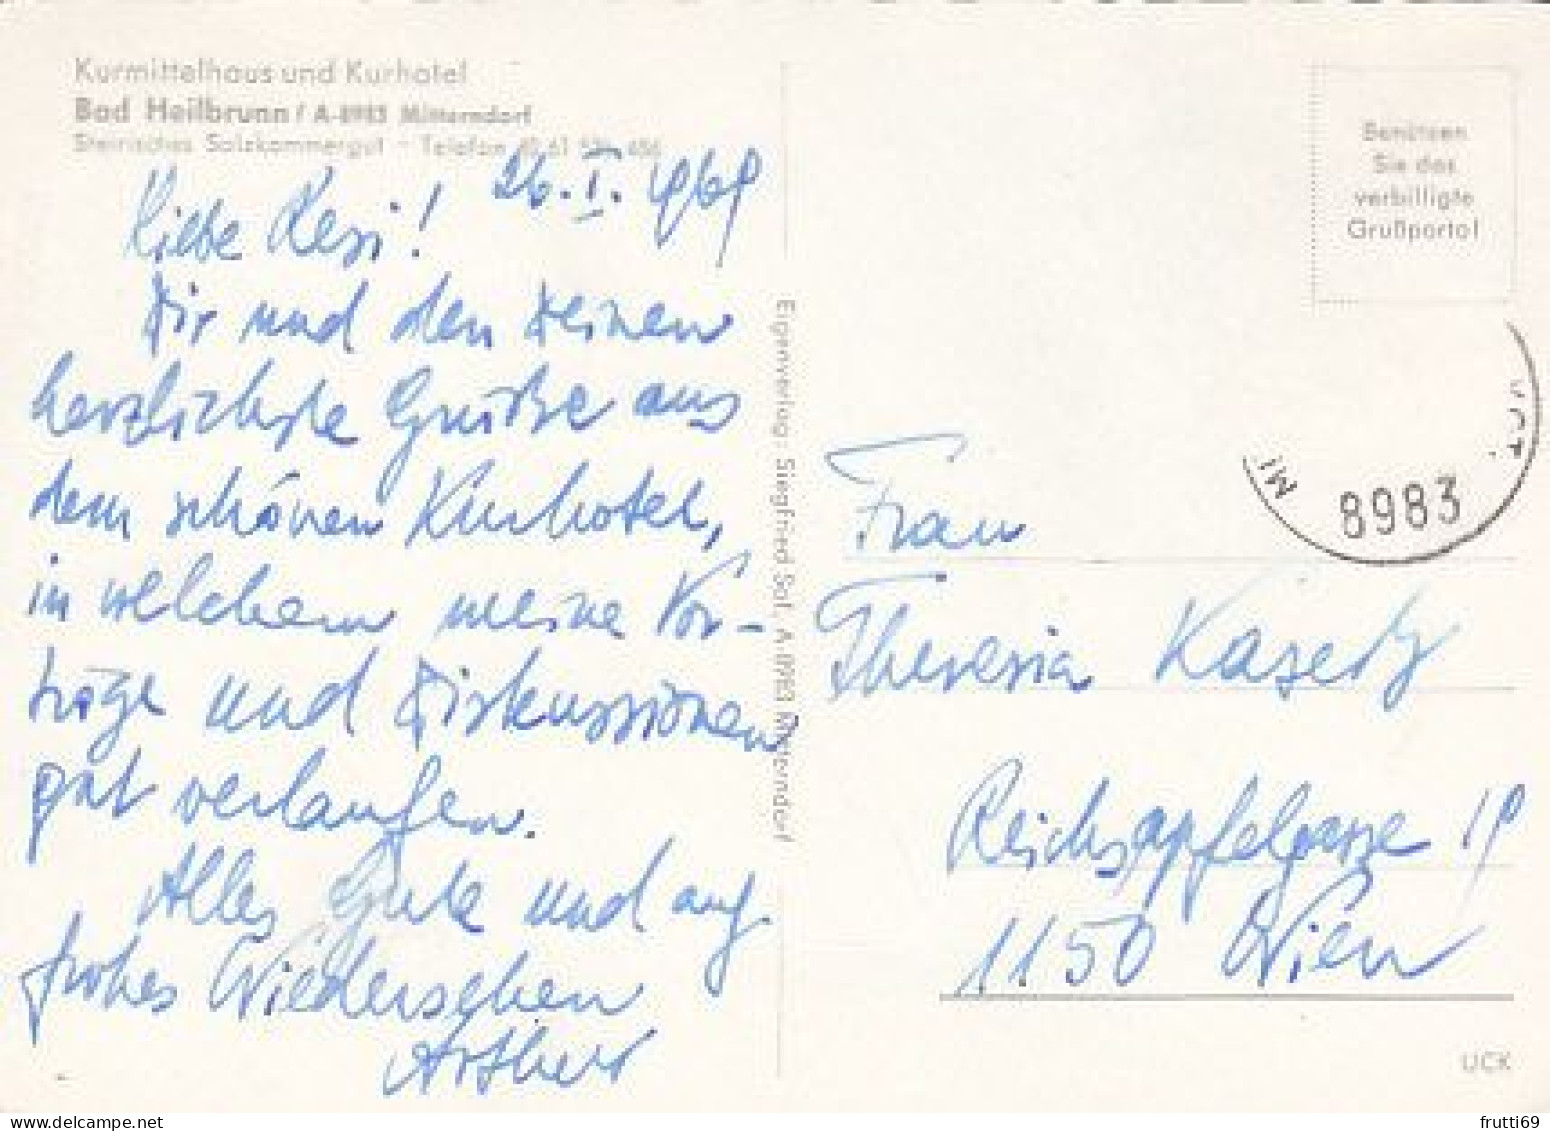 Kurmittelhaus und Kurhotel
Bad Heilbrunn / A-8983 Mitterndorf
Steirisches Salzkammergut - Telefon
26. I. 1969
Liebe Resi!
Dir und den Deinen
herzlichste Grüße aus
dem schönen Kurhotel,
in welchem meine Vor-
träge und Diskussionen
gut verlaufen.
Alles Gute und auf
frohes Wiedersehen
Arthur
Eigenverlag: Siegfried Sol, A-8983 Mitterndorf
Benützen
Sie das
verbilligte
Grußporto!
MI
8983
Frau
Theresia
Reichsapfelgasse 19
1150 Wien
UCK
frutti69